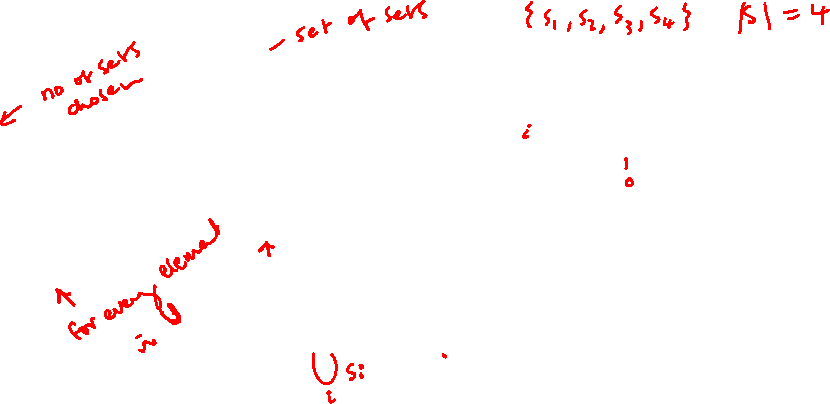 - set of sets
{s₁, s₂, s₃, s₄} |s| = 4
← no of sets
chosen
i
1
0
for every element
in
⋃ si
i